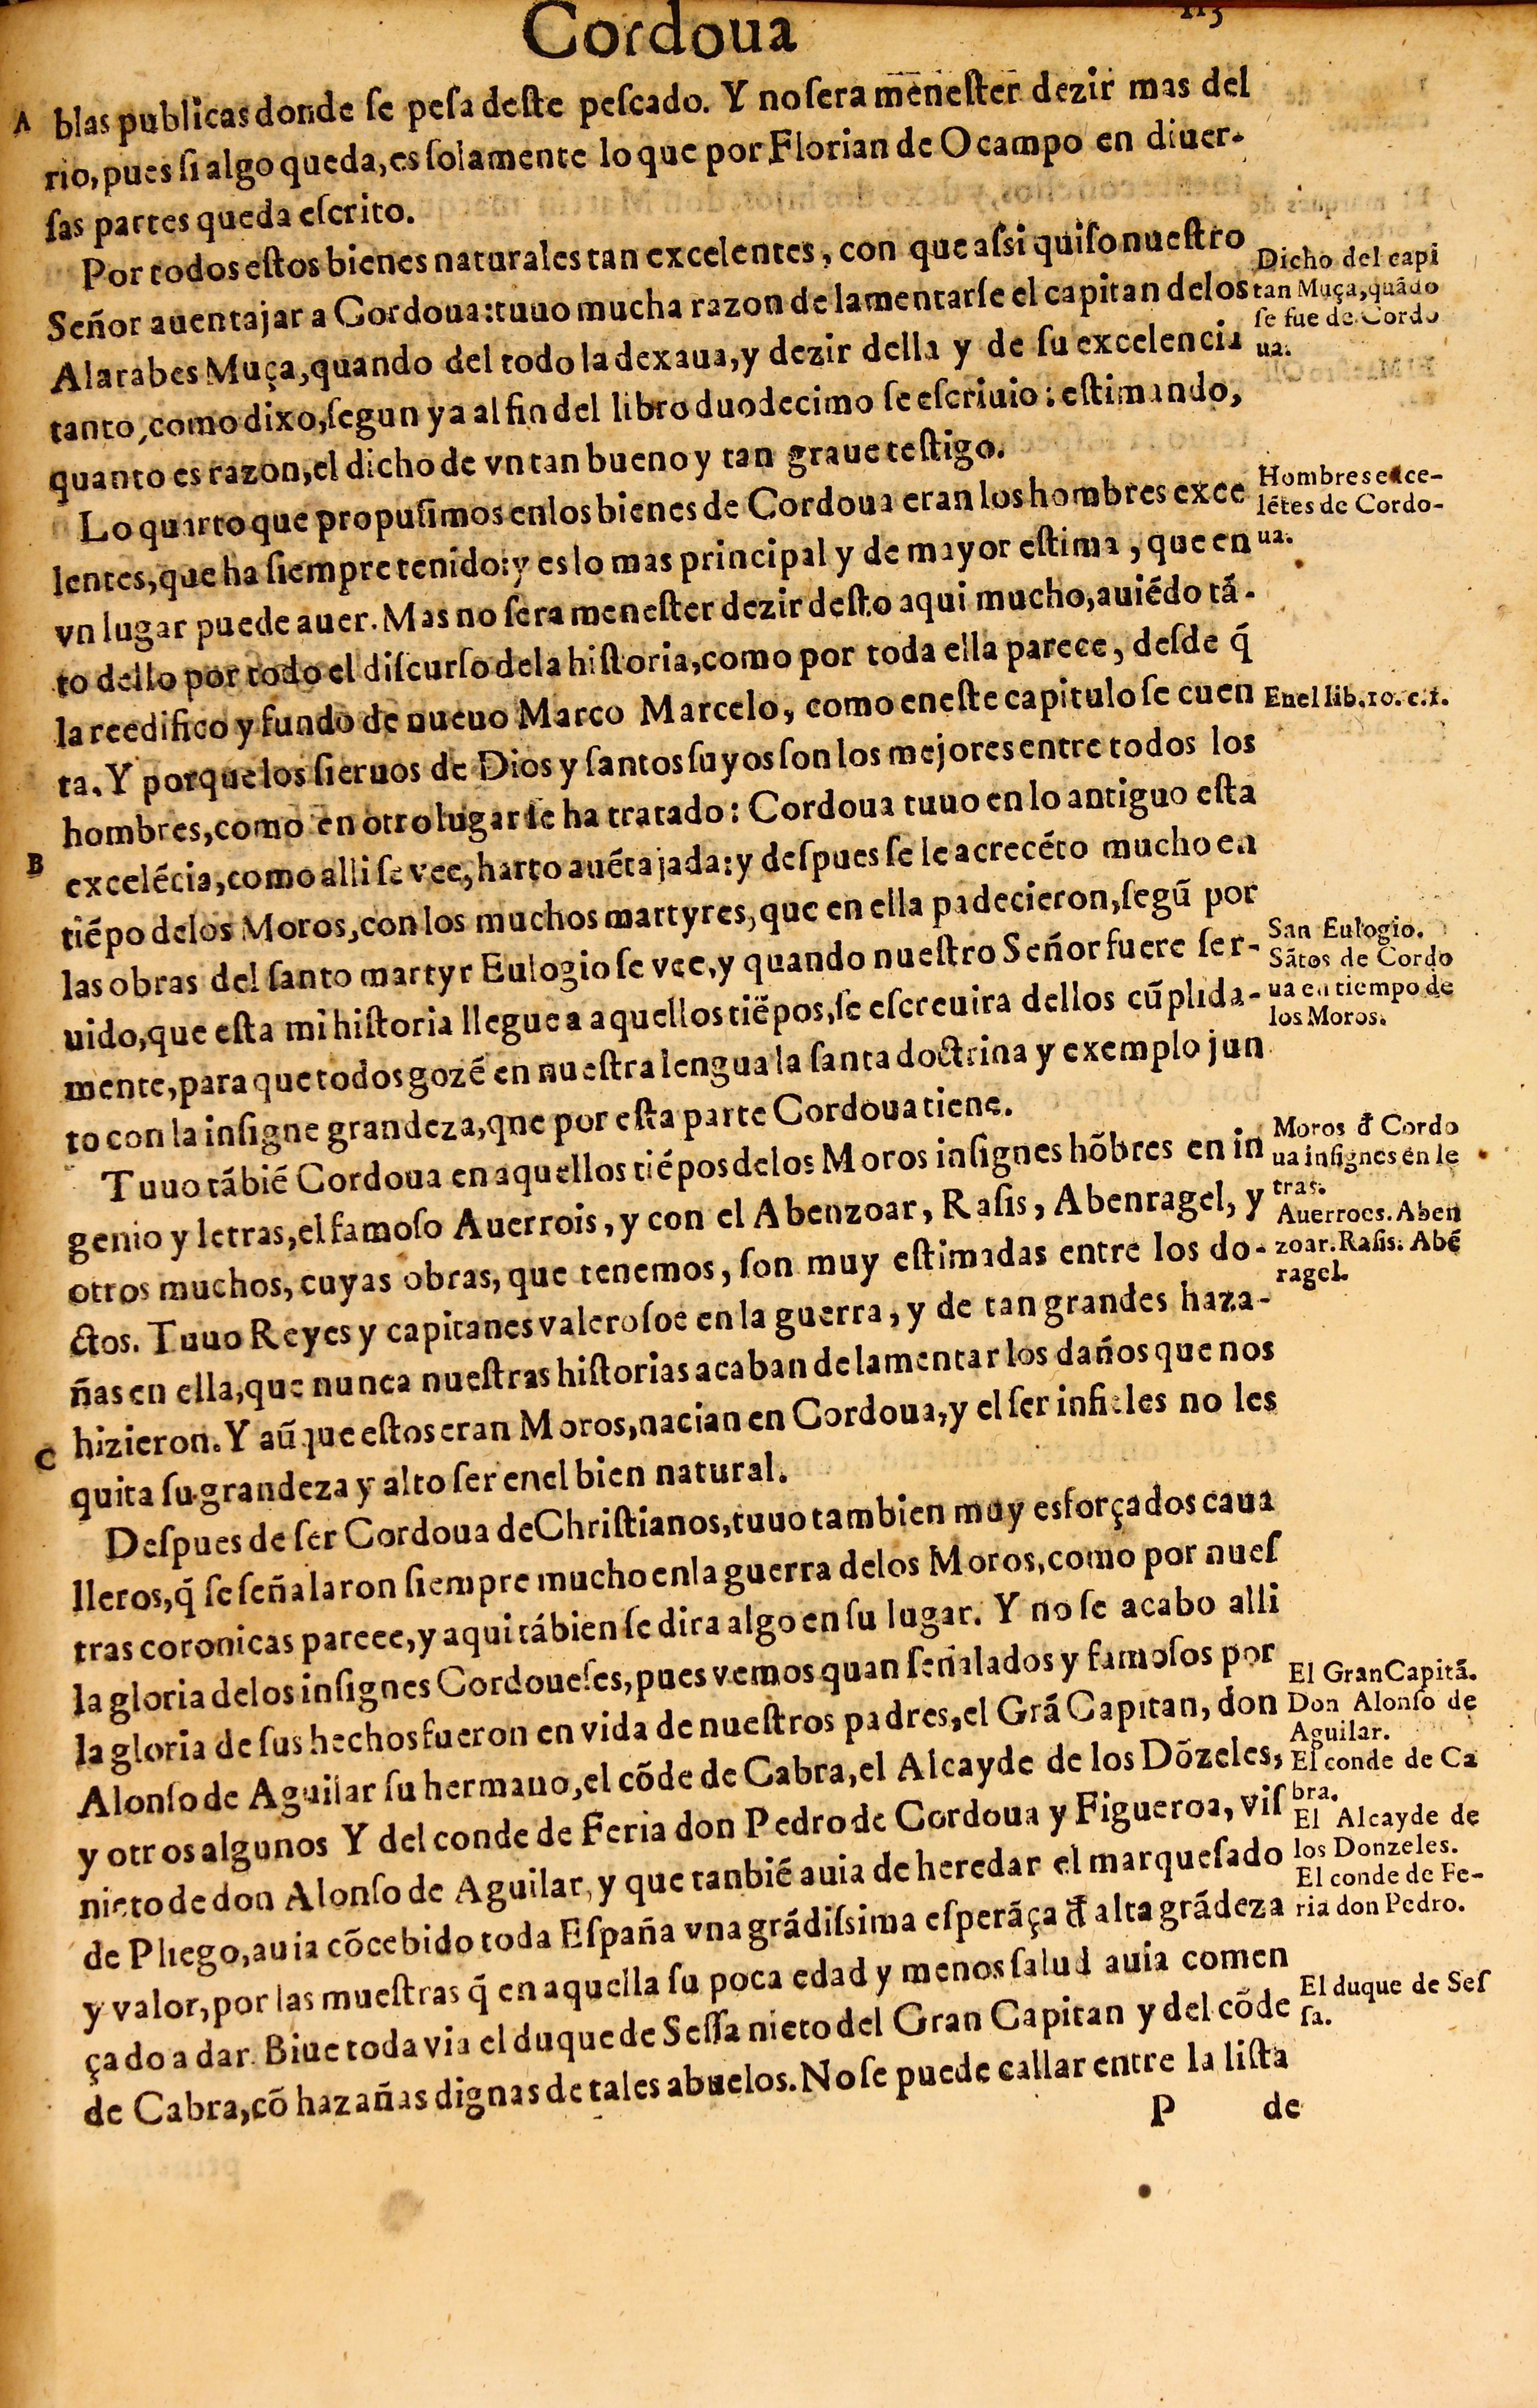 Cordoua
113
A blas publicas donde se pesa deste pescado. Y no sera menester dezir mas del
rio, pues si algo queda, es solamente lo que por Florian de Ocampo en diuer-
sas partes queda escrito.
Por todos estos bienes naturales tan excelentes, con que assi quiso nuestro
Señor auentajar a Cordoua: tuuo mucha razon de lamentarse el capitan delos
Alarabes Muça, quando del todo la dexaua, y dezir della y de su excelencia
tanto, como dixo, segun ya al fin del libro duodecimo se escriuio: estimando,
quanto es razon, el dicho de vn tan bueno y tan graue testigo.
Dicho del capi
tan Muça, quãdo
se fue de Cordo
ua.
Lo quarto que propusimos enlos bienes de Cordoua eran los hombres exce
lentes, que ha siempre tenido: y es lo mas principal y de mayor estima, que en
vn lugar puede auer. Mas no sera menester dezir desto aqui mucho, auiẽdo tã-
to dello por todo el discurso dela historia, como por toda ella parece, desde q̃
la reedifico y fundo de nueuo Marco Marcelo, como eneste capitulo se cuen
ta. Y porque los sieruos de Dios y santos suyos son los mejores entre todos los
hombres, como en otro lugar se ha tratado: Cordoua tuuo en lo antiguo esta
B excelẽcia, como alli se vee, harto auẽtajada: y despues se le acrecẽto mucho en
tiẽpo delos Moros, con los muchos martyres, que en ella padecieron, segũ por
las obras del santo martyr Eulogio se vee, y quando nuestro Señor fuere ser-
uido, que esta mi historia llegue a aquellos tiẽpos, se escreuira dellos cũplida-
mente, para que todos gozẽ en nuestra lengua la santa doctrina y exemplo jun
to con la insigne grandeza, qne por esta parte Cordoua tiene.
Hombres exce-
lẽtes de Cordo-
ua.
Enel lib. 10. c. 1.
San Eulogio.
Sãtos de Cordo
ua en tiempo de
los Moros.
Tuuo tãbiẽ Cordoua en aquellos tiẽpos delos Moros insignes hõbres en in
genio y letras, el famoso Auerrois, y con el Abenzoar, Rasis, Abenragel, y
otros muchos, cuyas obras, que tenemos, son muy estimadas entre los do-
ctos. Tuuo Reyes y capitanes valerosoe en la guerra, y de tan grandes haza-
ñas en ella, que nunca nuestras historias acaban de lamentar los daños que nos
C hizieron. Y aũque estos eran Moros, nacian en Cordoua, y el ser infieles no les
quita su grandeza y alto ser enel bien natural.
Moros đ Cordo
ua insignes en le
tras.
Auerroes. Aben
zoar. Rasis. Abẽ
ragel.
Despues de ser Cordoua de Christianos, tuuo tambien muy esforçados caua
lleros, q̃ se señalaron siempre mucho enla guerra delos Moros, como por nues
tras coronicas parece, y aqui tãbien se dira algo en su lugar. Y no se acabo alli
la gloria delos insignes Cordoueses, pues vemos quan señalados y famosos por
la gloria de sus hechos fueron en vida de nuestros padres, el Grã Capitan, don
Alonso de Aguilar su hermano, el cõde de Cabra, el Alcayde de los Dõzeles,
y otros algunos Y del conde de Feria don Pedro de Cordoua y Figueroa, vis
nieto de don Alonso de Aguilar, y que tanbiẽ auia de heredar el marquesado
de Pliego, auia cõcebido toda España vna grãdissima esperãça đ alta grãdeza
y valor, por las muestras q̃ en aquella su poca edad y menos salud auia comen
çado a dar. Biue toda via el duque de Sessa nieto del Gran Capitan y del cõde
de Cabra, cõ hazañas dignas de tales abuelos. No se puede callar entre la lista
El Gran Capitã.
Don Alonso de
Aguilar.
El conde de Ca
bra.
El Alcayde de
los Donzeles.
El conde de Fe-
ria don Pedro.
El duque de Ses
sa.
P de